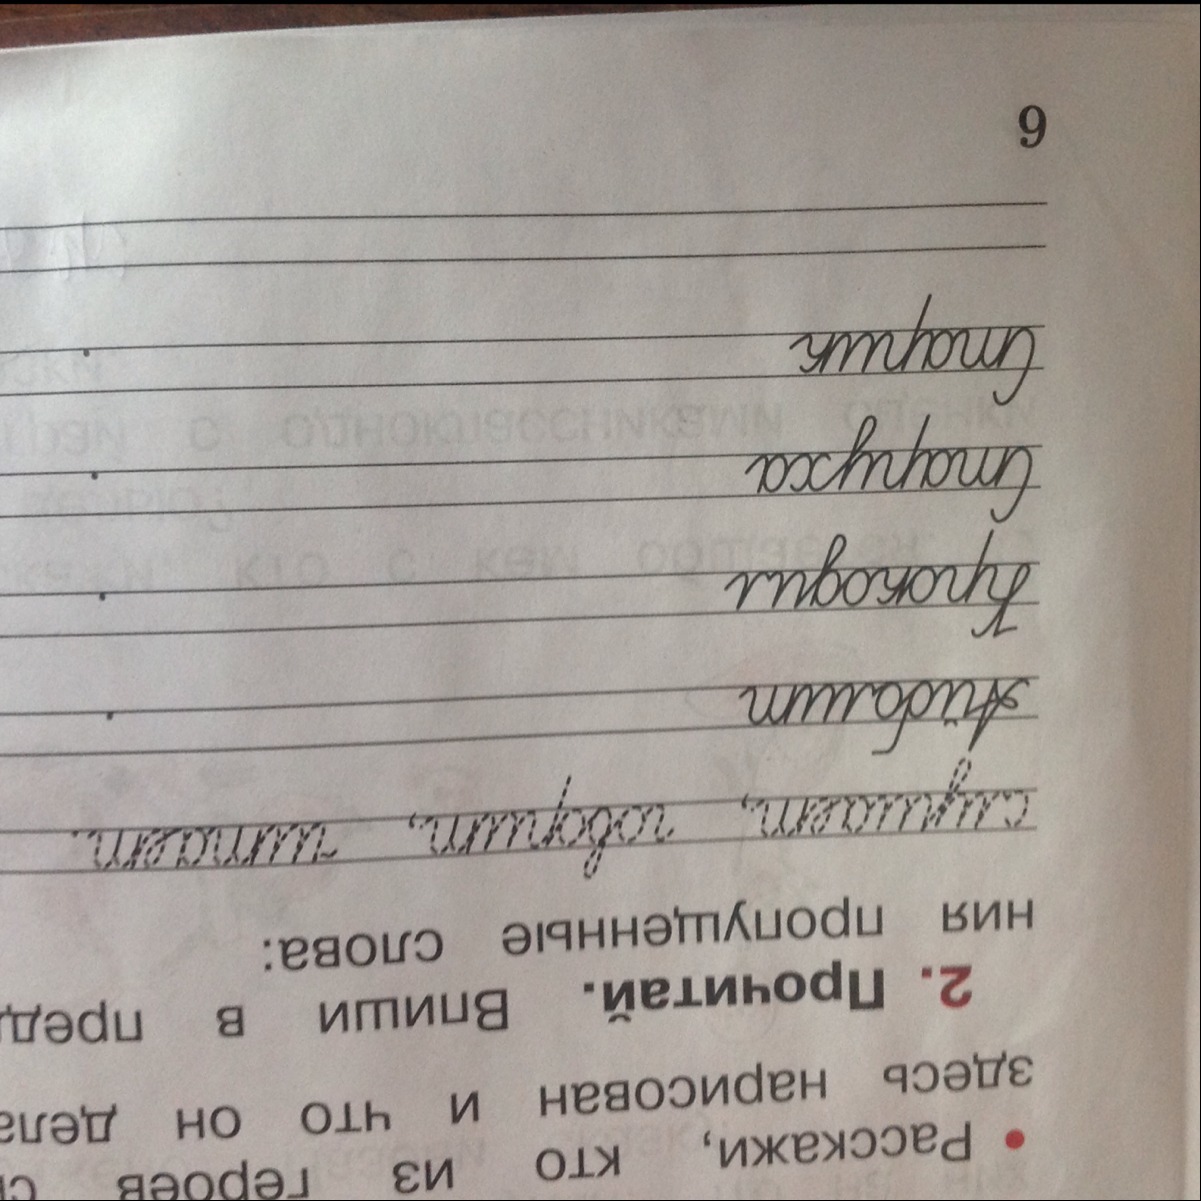 • Расскажи, кто из героев
здесь нарисован и что он дела
2. Прочитай. Впиши в пред
ния пропущенные слова:
слушает, говорит, читает.
Айболит .
Крокодил .
Старуха .
Старик .
6